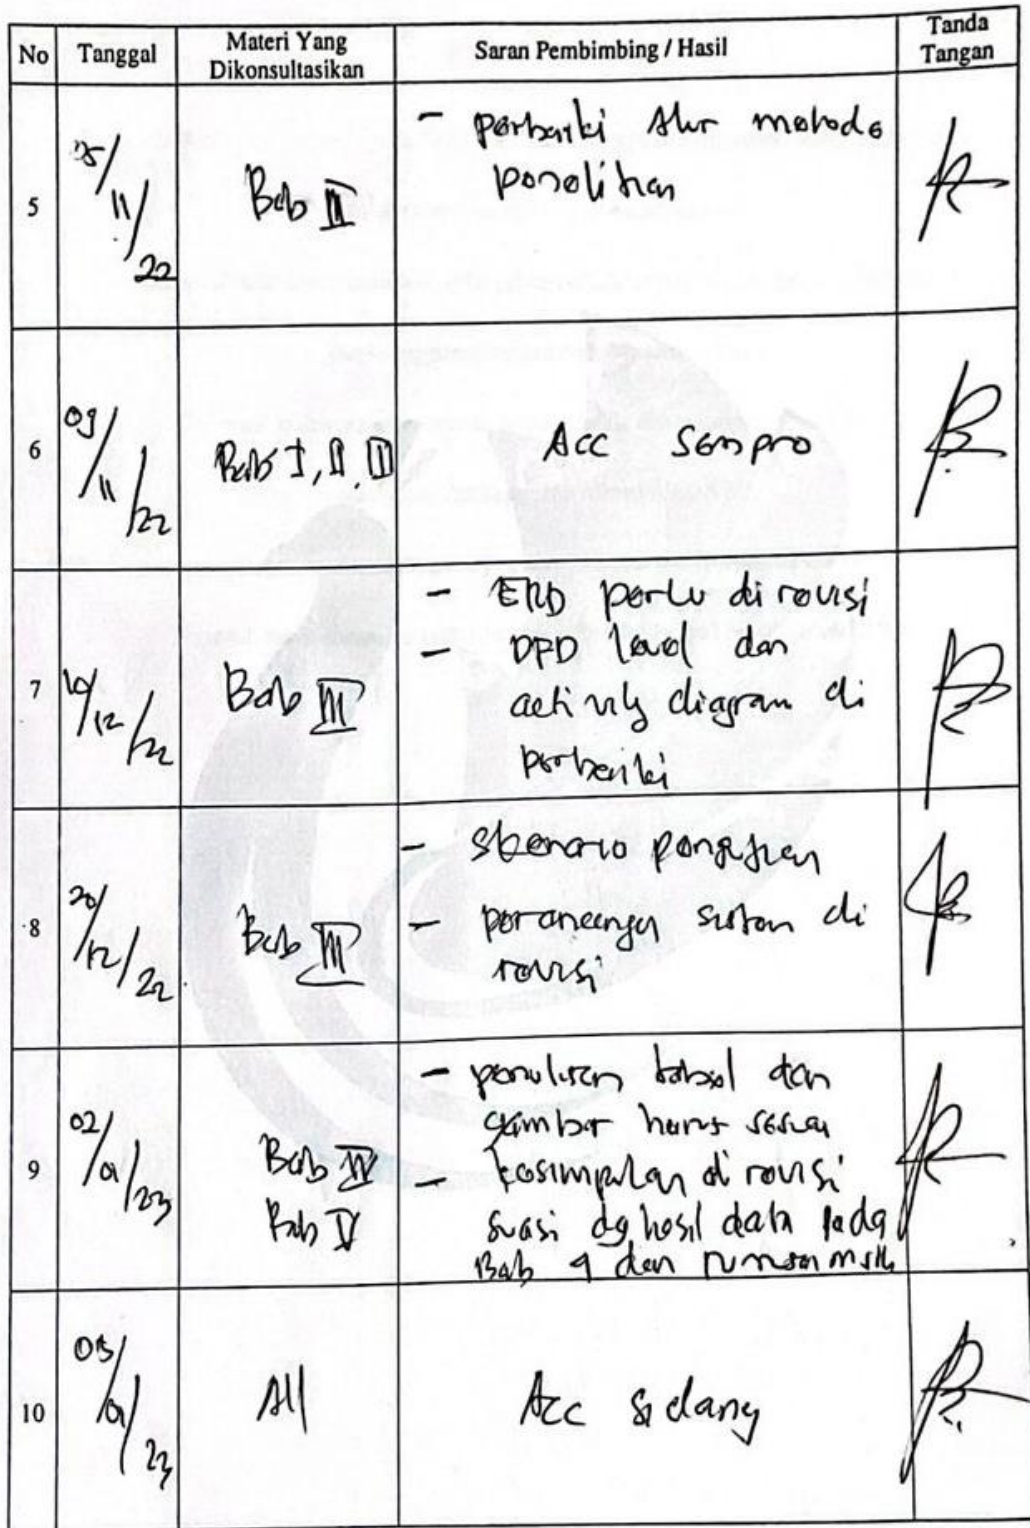 No Tanggal Materi Yang Dikonsultasikan Saran Pembimbing / Hasil Tanda Tangan
5 /11/22 Bab III - perbaiki Alur metode
penelitian
6 /11/22 Bab I, II, III Acc Sempro
7 /12/22 Bab III - ERD perlu di revisi
- DFD level dan
activity diagram di
perbaiki
8 20/12/22 Bab III - skenario pengujian
- perancangan sistem di
revisi
9 02/01/23 Bab IV - penulisan tabel dan
gambar harus sesuai
Bab V - kesimpulan di revisi
suasi dg hasil data pada
Bab 4 dan rumusan
10 /01/23 All Acc Sidang